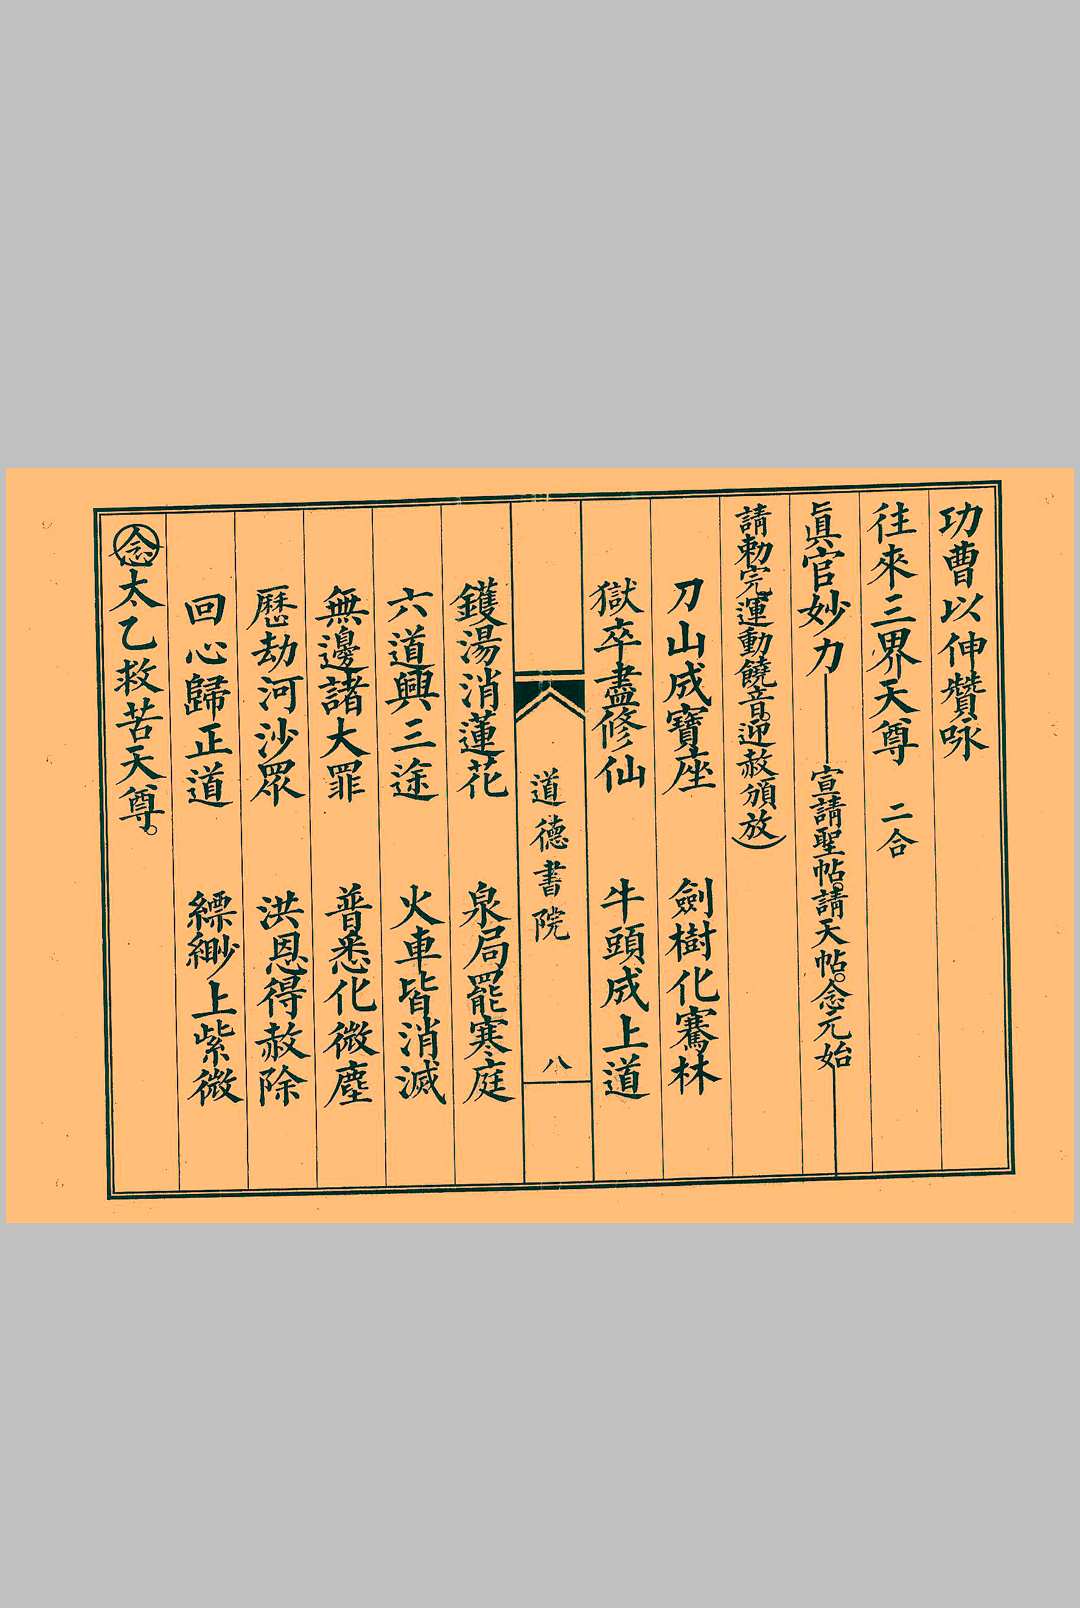 功曹以伸贊咏
往來三界天尊　二合
眞官妙力——宣請聖帖。請天帖。念元始——
請勅完。運動鐃音。迎赦頒放）
刀山成寶座　劍樹化騫林
獄卒盡修仙　牛頭成上道
道德書院　八
鑊湯消蓮花　泉局罷寒庭
六道興三途　火車皆消滅
無邊諸大罪　普悉化微塵
歷劫河沙眾　洪恩得赦除
回心歸正道　縹緲上紫微
念太乙救苦天尊。